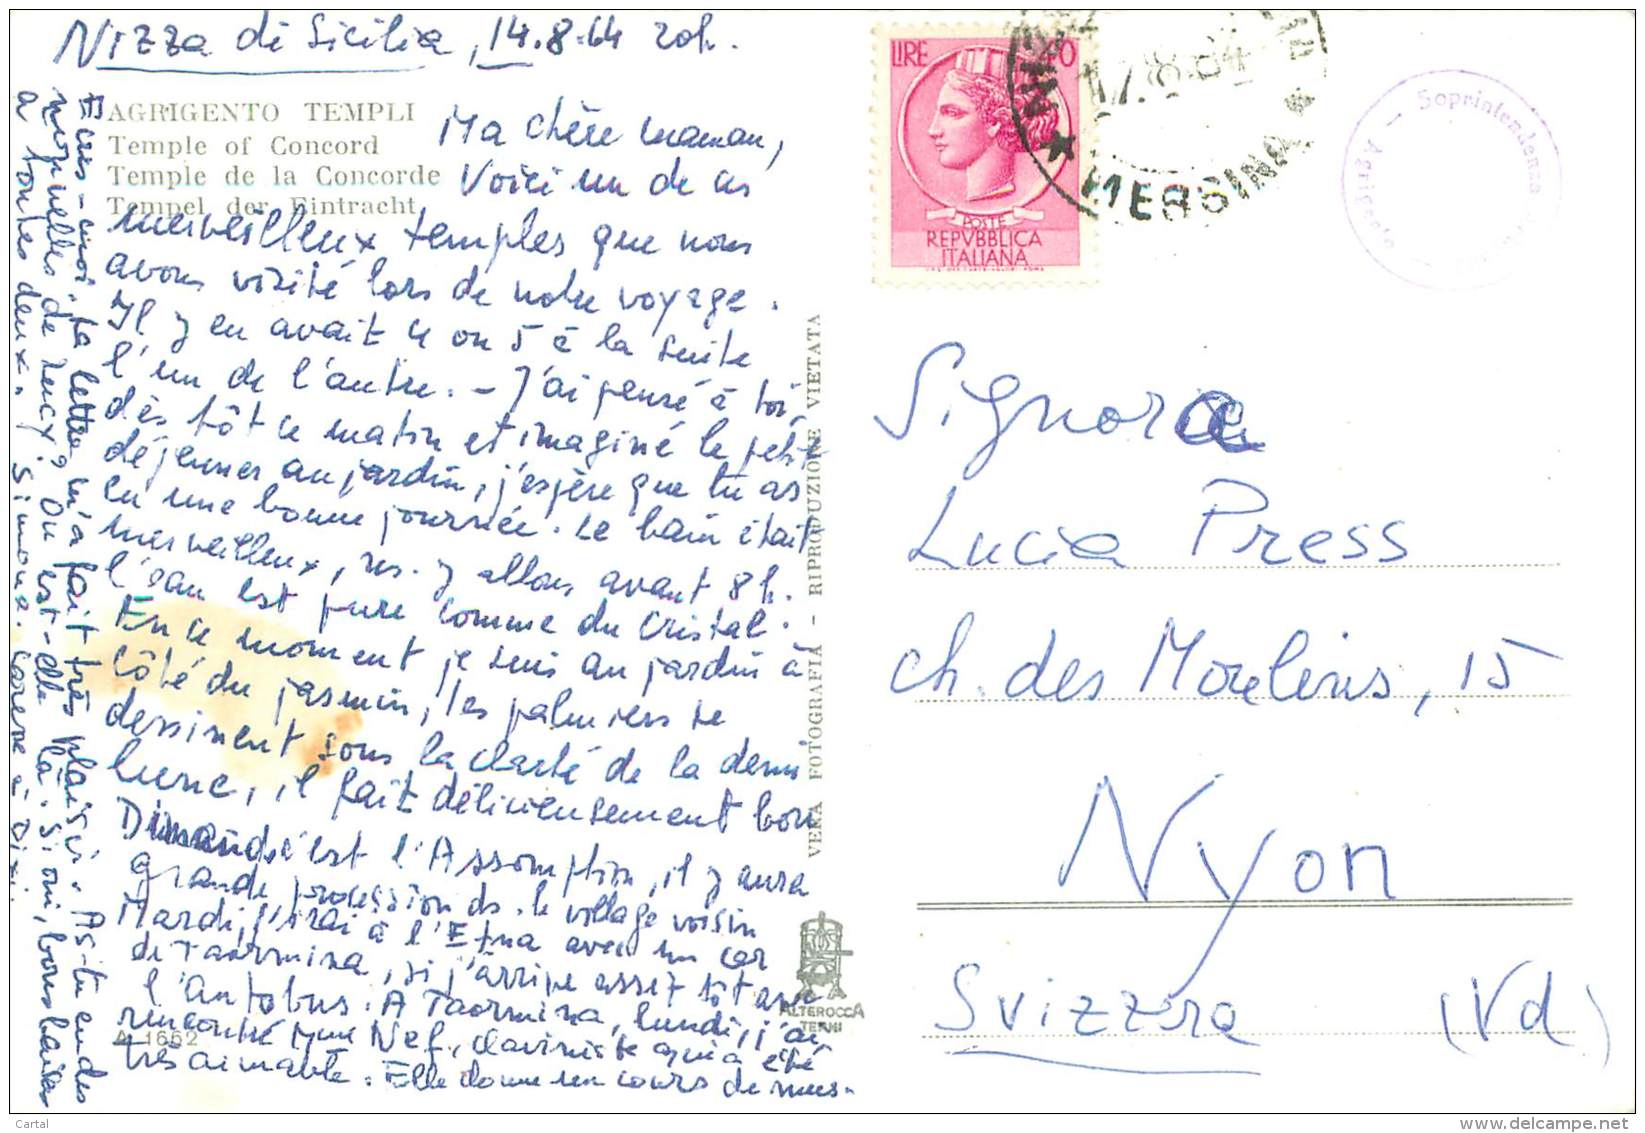 Nizza di Sicilia, 14.8.64 20h.
AGRIGENTO TEMPLI
Temple of Concord
Temple de la Concorde
Tempel der Eintracht
Ma chère maman,
Voici un de ces
merveilleux temples que nous
avons visité lors de notre voyage.
Il y en avait 4 ou 5 à la suite
l'un de l'autre. - J'ai pensé à toi,
dès tôt ce matin et imaginé le petit
déjeuner au jardin, j'espère que tu as
eu une bonne journée. Le bain était
merveilleux, ns. y allons avant 8h.
l'eau est pure comme du cristal.
En ce moment je suis au jardin à
côté du jasmin, les palmiers se
dessinent sous la clarté de la demi
lune, il fait délicieusement bon
c'est l'Assomption, il y aura
grande procession ds. le village voisin
Mardi, j'irai à l'Etna avec un car
de Taormina, si j'arrive assez tôt avec
l'autobus. A Taormina, lundi, j'ai
rencontré Mme Nef, claviniste qui a été
très aimable. Elle donne un cours de mus.
Ecris-moi, ta lettre m'a fait très plaisir. As-tu eu des
nouvelles de Lucy? Où est-elle là. si oui, bons baisers
à toutes deux. Simone. Caresse à Dixi.
VERA FOTOGRAFIA - RIPRODUZIONE VIETATA
ALTEROCCA
TERNI
A 1662
LIRE 40
POSTE
REPVBBLICA
ITALIANA
MESSINA
Soprintendenza
Agrigento
Signora
Lucia Press
ch. des Moulins, 15
Nyon
Svizzera (Vd)
Cartal
www.delcampe.net